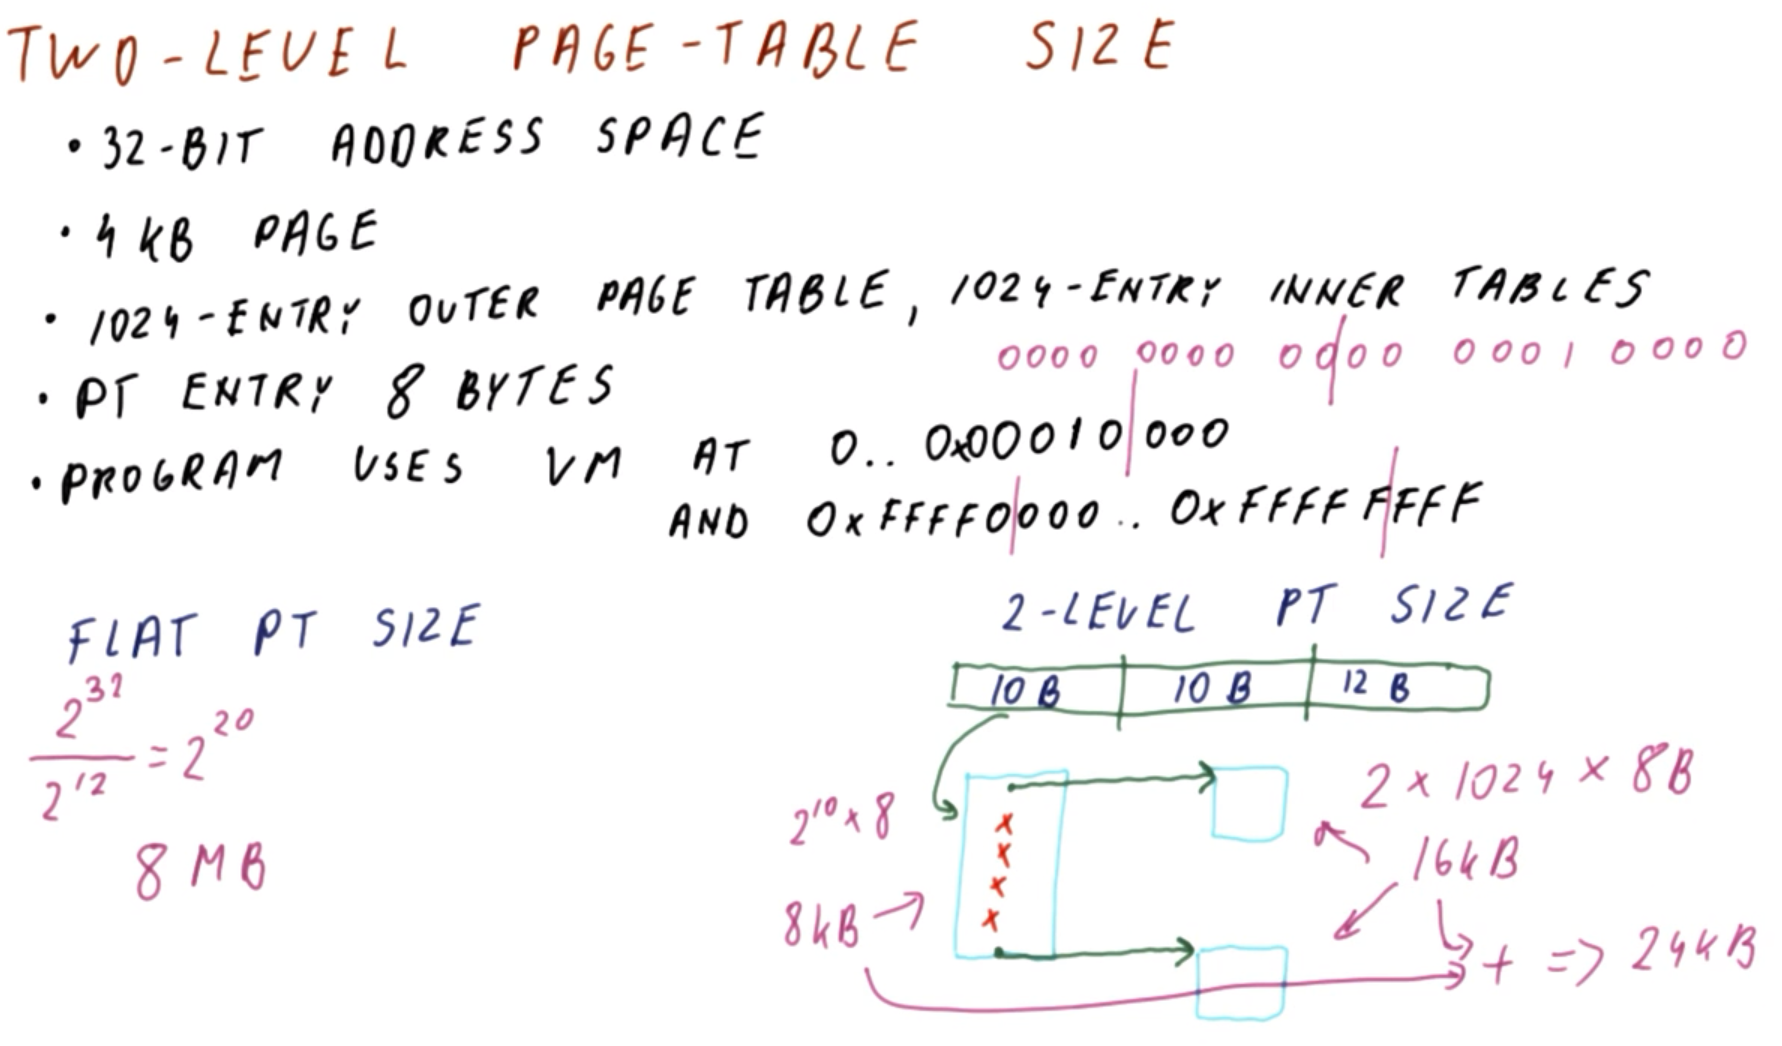 TWO-LEVEL PAGE-TABLE SIZE
• 32-BIT ADDRESS SPACE
• 4 KB PAGE
• 1024-ENTRY OUTER PAGE TABLE, 1024-ENTRY INNER TABLES
0000 0000 0000 0001 0000
• PT ENTRY 8 BYTES
• PROGRAM USES VM AT 0.. 0x00010000
AND 0xFFFF0000.. 0xFFFFFFFF
FLAT PT SIZE
2^32 / 2^12 = 2^20
8 MB
2-LEVEL PT SIZE
10 B 10 B 12 B
2^10 x 8
8kB
x
x
x
x
2 x 1024 x 8B
16kB
+ => 24kB